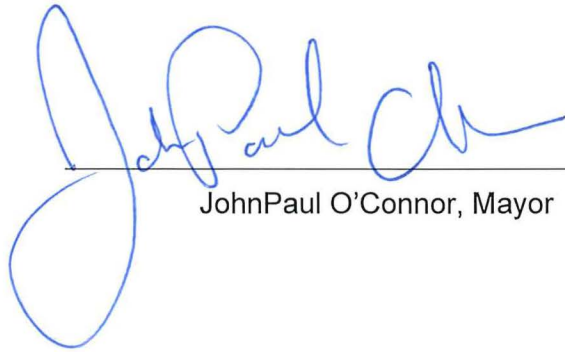 JohnPaul O
JohnPaul O’Connor, Mayor